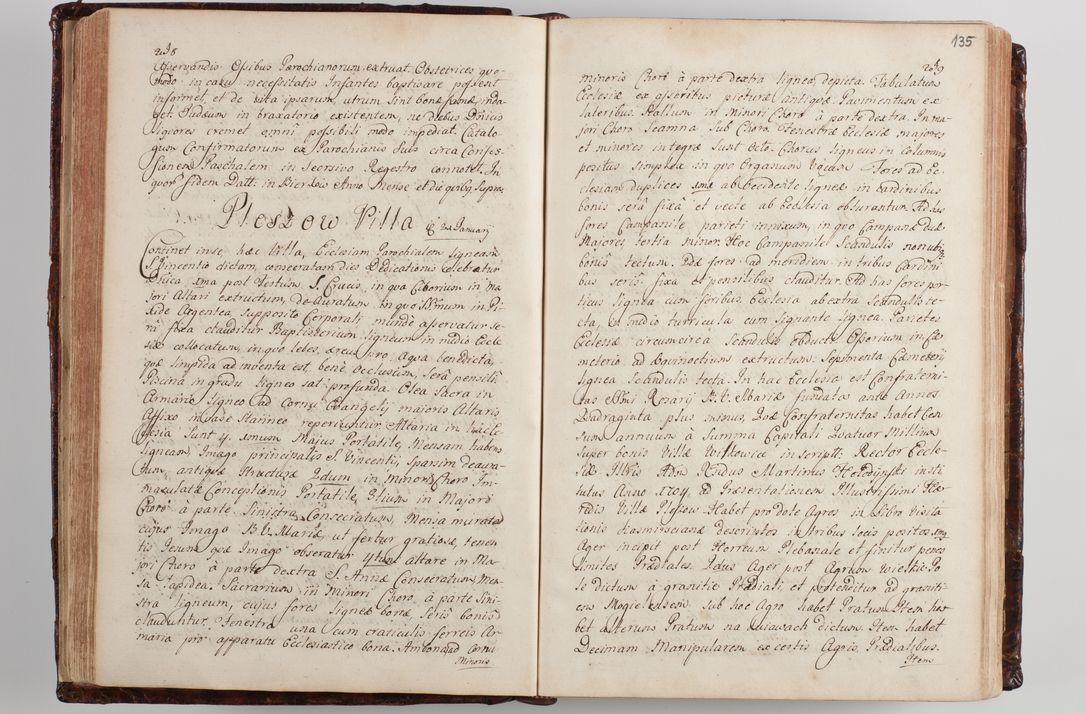 238
Asservandis Ossibus Parochianorum extruat. Obstetrices quo-
modo in casu necessitatis Infantes baptisare possent
informet, et de vita ipsarum, utrum sint bonæ famæ, inda-
get. Judæum in braxatorio existentem, ne diebus Dnicis
liquores cremet omni possibili modo impediat. Catalo-
gum Confirmatorum ex Parochianis suis circa Confes-
sionem Paschalem in seorsivo Regestro connotet. In
quor fidem Datt: in Anno Mense et die quibg supra
Pleszow Villa
22 January
Continet in se hæc Villa, Ecclesiam Parochialem ligneam
S. Vincentio dictam, consecratam dies Dedicationis celebratur
Dnica 1ma post Festum S. Crucis, in qua Ciborium in Ma
jori Altari extructum, de-auratum in quo SSmum in Pi-
xide Argentea supposito Corporali munde asservatur se-
râ fixa clauditur Baptisterium ligneum in medio Eccle
siæ collocatum, in quo lebes æreus pro Aqua benedicta,
quæ limpida ad inventa est, benè occlusum, serâ pensili
Piscina in gradu ligneo sat profunda Olea Sacra in
Armario ligneo ad Cornu Evangelij majoris Altaris
Affixo in vase Stanneo reperiuntur Altaria in hac Ec
clesia sunt 4. 1mum Majus Portatile, Mensam habens
ligneam, Imago principalis S. Vincentij, sparsim deaura-
tum, antiquæ structuræ 2dum in minori Choro, Im-
maculatæ Conceptionis Portatile, 3tium in Majori
Choro à parte Sinistra Consecratum, Mensa murata
cujus Imago B.V. Mariæ, ut fertur gratiosæ, tenen
tis Jesum quæ Imago obseratur 4tum altare in Ma
jori Choro à parte dextra S. Annæ Consecratum, Men
sa lapidea. Sacrarium in Minori Choro, à parte Sini-
stra ligneum, cujus fores ligneæ bonæ, Seris bonis
clauduntur, Fenestra una cum craticulis ferreis Ar-
maria pro apparatu Ecclesiastico bona. Ambona ad Cornu
Minoris
135
239
minoris Chori à parte dextra lignea, depicta. Tabulatum
Ecclesiæ ex asseribus picturæ antiquæ Pavimentum ex
lateribus. Stallum in Minori Choro à parte dextra. In ma
jori Choro Scamna sub Choro. Fenestræ Ecclesiæ majores
et minores integræ sunt Octo. Chorus ligneus in columnis
positus simplex in quo Organum vacans. Fores ad Ec-
clesiam duplices 1mæ ab Occidente ligneæ in cardinibus
bonis serâ fixâ et vecte ab Ecclesia obturantur. Ad has
fores Campanile parieti innixum, in quo Campanæ duæ
Majores, tertia minor. Hoc Campanile Scandulis non ubiq
bonis tectum. 2dæ fores ad meridiem in tribus Cardini
bus seris fixa et pensilibus clauditur. Ad has fores por-
ticus lignea cum foribus, Ecclesia ab extra Scandulis te-
cta, in medio turricula cum signante lignea. Parietes
Ecclesiæ circumcirca Scandulis Obducti Ossorium in Cæ
meterio ad Equinoctium extructum: Sepimenta Cæmeterij
lignea Scandulis tecta. In hac Ecclesia est Confraterni-
tas SSmi Rosarij B.V. Mariæ fundatas ante Annos
Quadraginta plus minus. Quæ Confraternitas habet Cen
sum annuum à Summa Capitali Quatuor Millium
super bonis Villæ Witkowice in script: Rector Eccle-
siæ Illris Adm Rndus Martinus insti
tutus Anno 1704, ad Præsentationem Illustrissimi Hæ
redis Villæ Plessow Habet pro dote Agros in Libro Visita
tionis Kazmirscianæ descriptos in tribus locis positos 1mg
Ager incipit post Horreum Plebanale et finitur penes
limites Prædiales. 2dus Ager post Agrum Wielkie Po
le dictum à granitie Prædiali, et protenditur ad graniti-
em sub hoc Agro habet Pratum Item ha
bet alterum Pratum na dictum. Item habet
Decimam Manipularem ex certis Agris Prædialibus.
Item